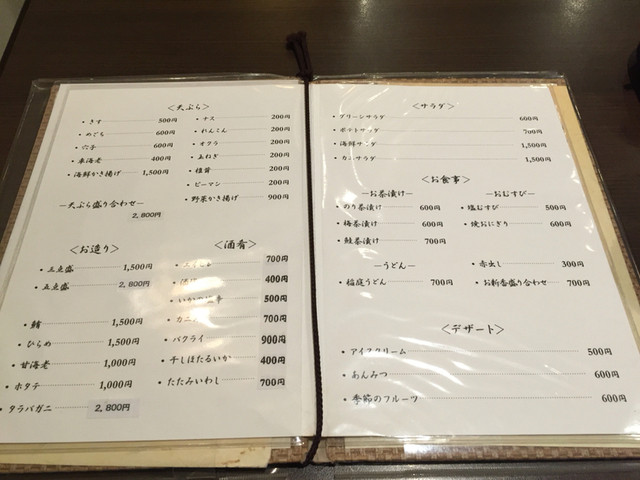 ＜天ぷら＞
・きす 500円
・めごち 600円
・穴子 600円
・車海老 400円
・海鮮かき揚げ 1,500円
―天ぷら盛り合わせ―
2,800円
・ナス 200円
・れんこん 200円
・オクラ 200円
・玉ねぎ 200円
・椎茸 200円
・ピーマン 200円
・野菜かき揚げ 900円
＜お造り＞
・三点盛 1,500円
・五点盛 2,800円
・鮪 1,500円
・ひらめ 1,500円
・甘海老 1,000円
・ホタテ 1,000円
・タラバガニ 2,800円
＜酒肴＞
700円
400円
500円
700円
・バクライ 900円
・干しほたるいか 400円
・たたみいわし 700円
＜サラダ＞
・グリーンサラダ 600円
・ポテトサラダ 700円
・海鮮サラダ 1,500円
・カニサラダ 1,500円
＜お食事＞
―お茶漬け―
・のり茶漬け 600円
・梅茶漬け 600円
・鮭茶漬け 700円
―おむすび―
・塩むすび 500円
・焼おにぎり 600円
―うどん―
・稲庭うどん 700円
・赤出し 300円
・お新香盛り合わせ 700円
＜デザート＞
・アイスクリーム 500円
・あんみつ 600円
・季節のフルーツ 600円